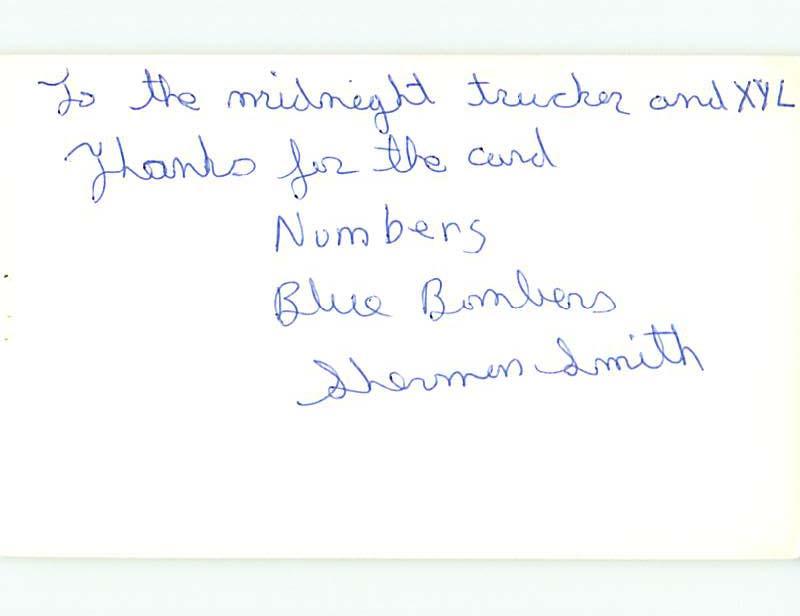 To the midnight trucker and XYL
Thanks for the card
Numbers
Blue Bombers
Shermen Smith